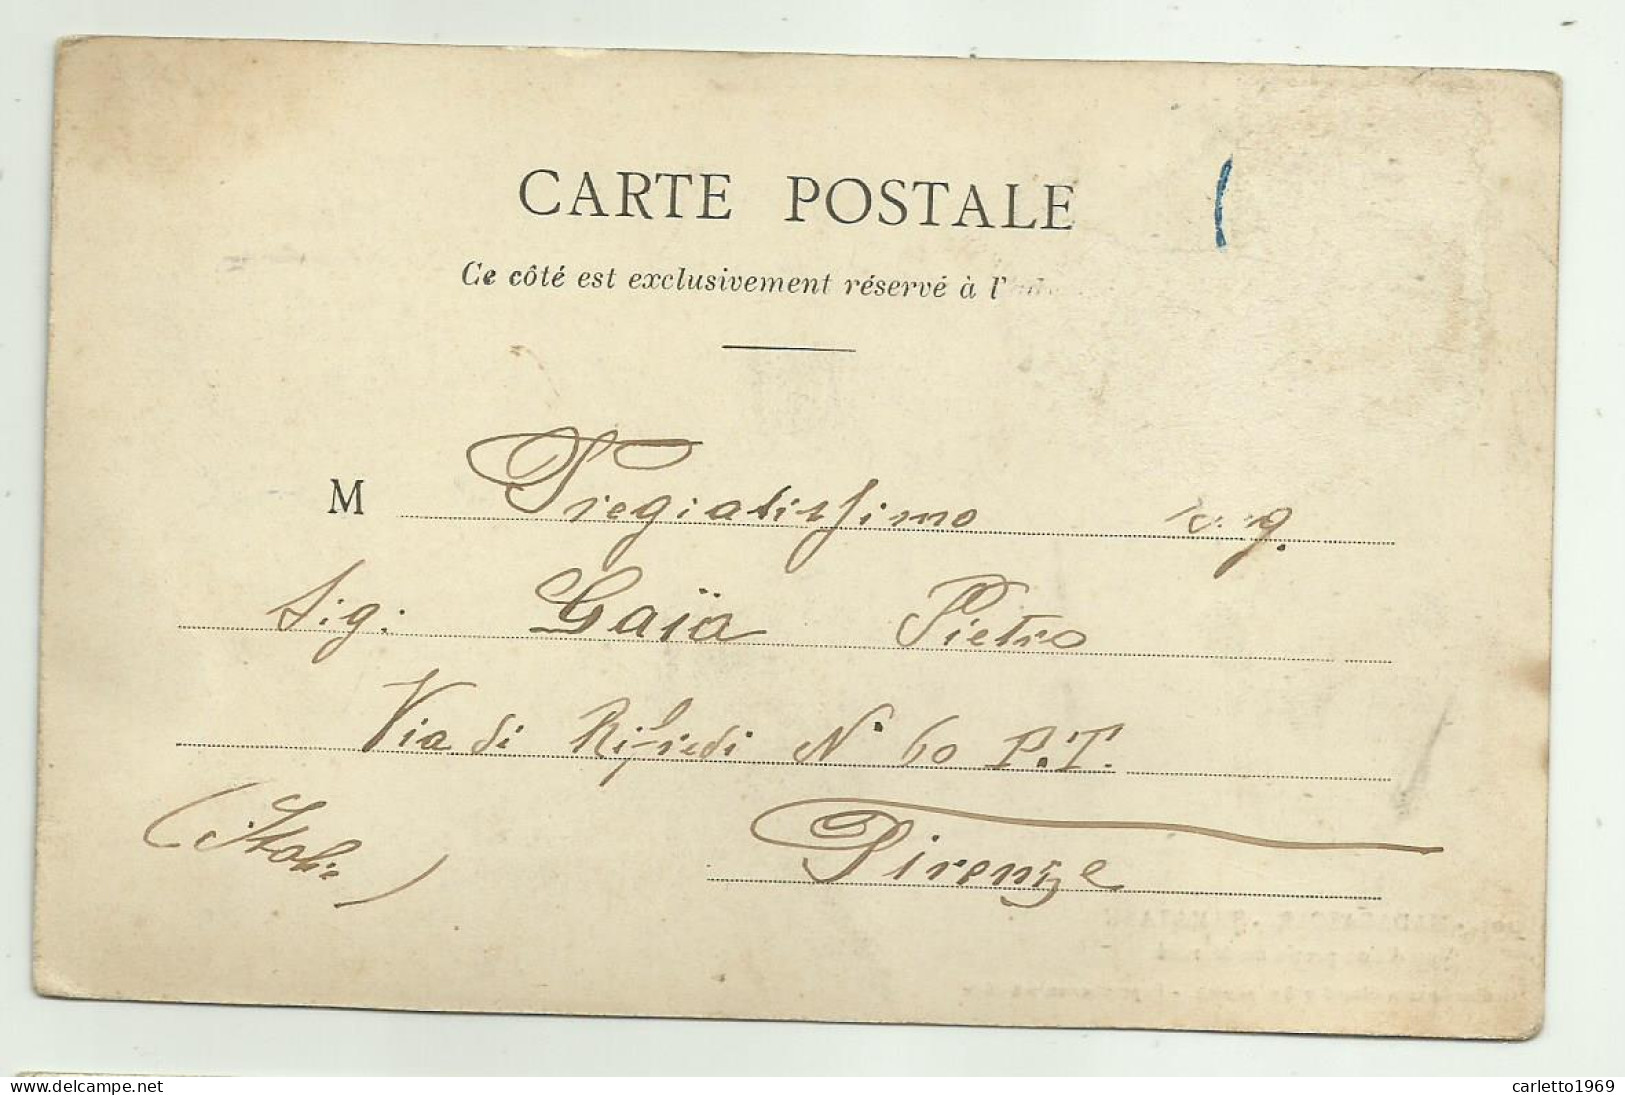 CARTE POSTALE
Ce côté est exclusivement réservé à l'
M Pregiatissimo
Sig. Gaïa Pietro
Via di Rifredi N° 60 P.T.
(Italie) Firenze
carletto1969
delcampe.net